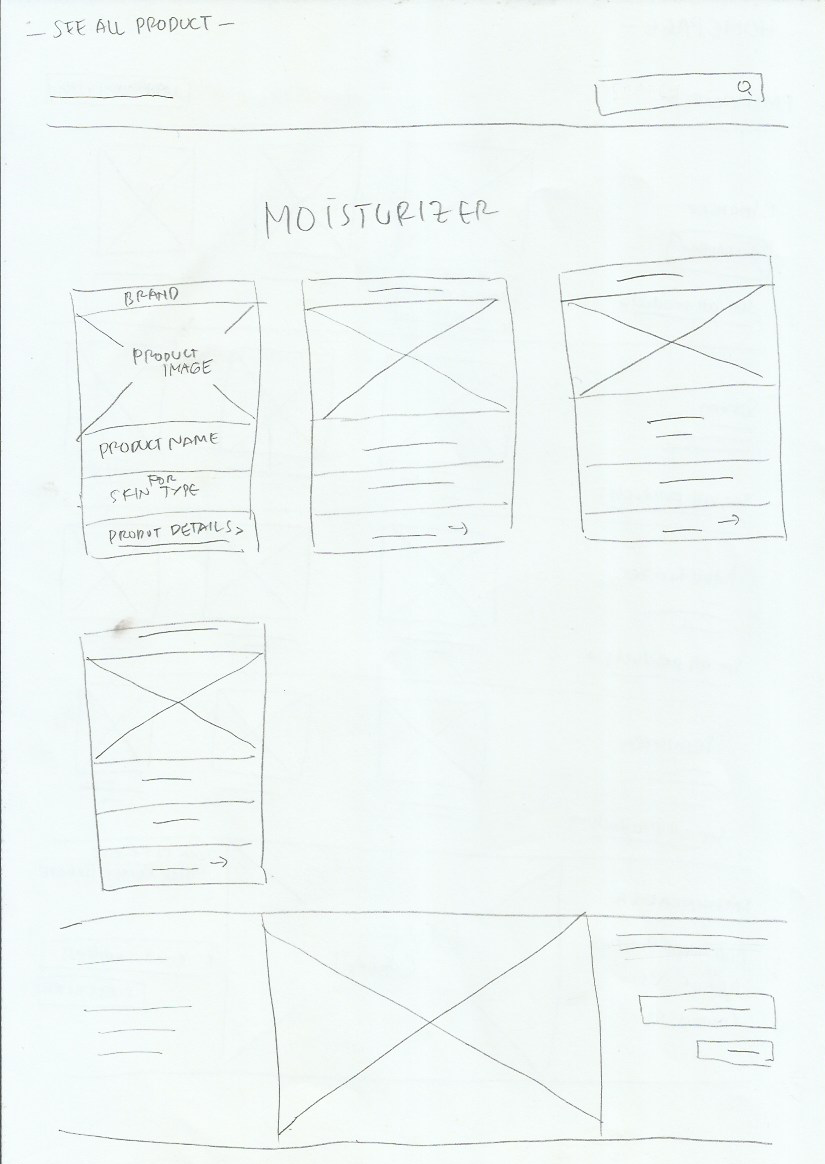 — SEE ALL PRODUCT —
MOISTURIZER
BRAND
PRODUCT
IMAGE
PRODUCT NAME
FOR
SKIN TYPE
PRODUT DETAILS >